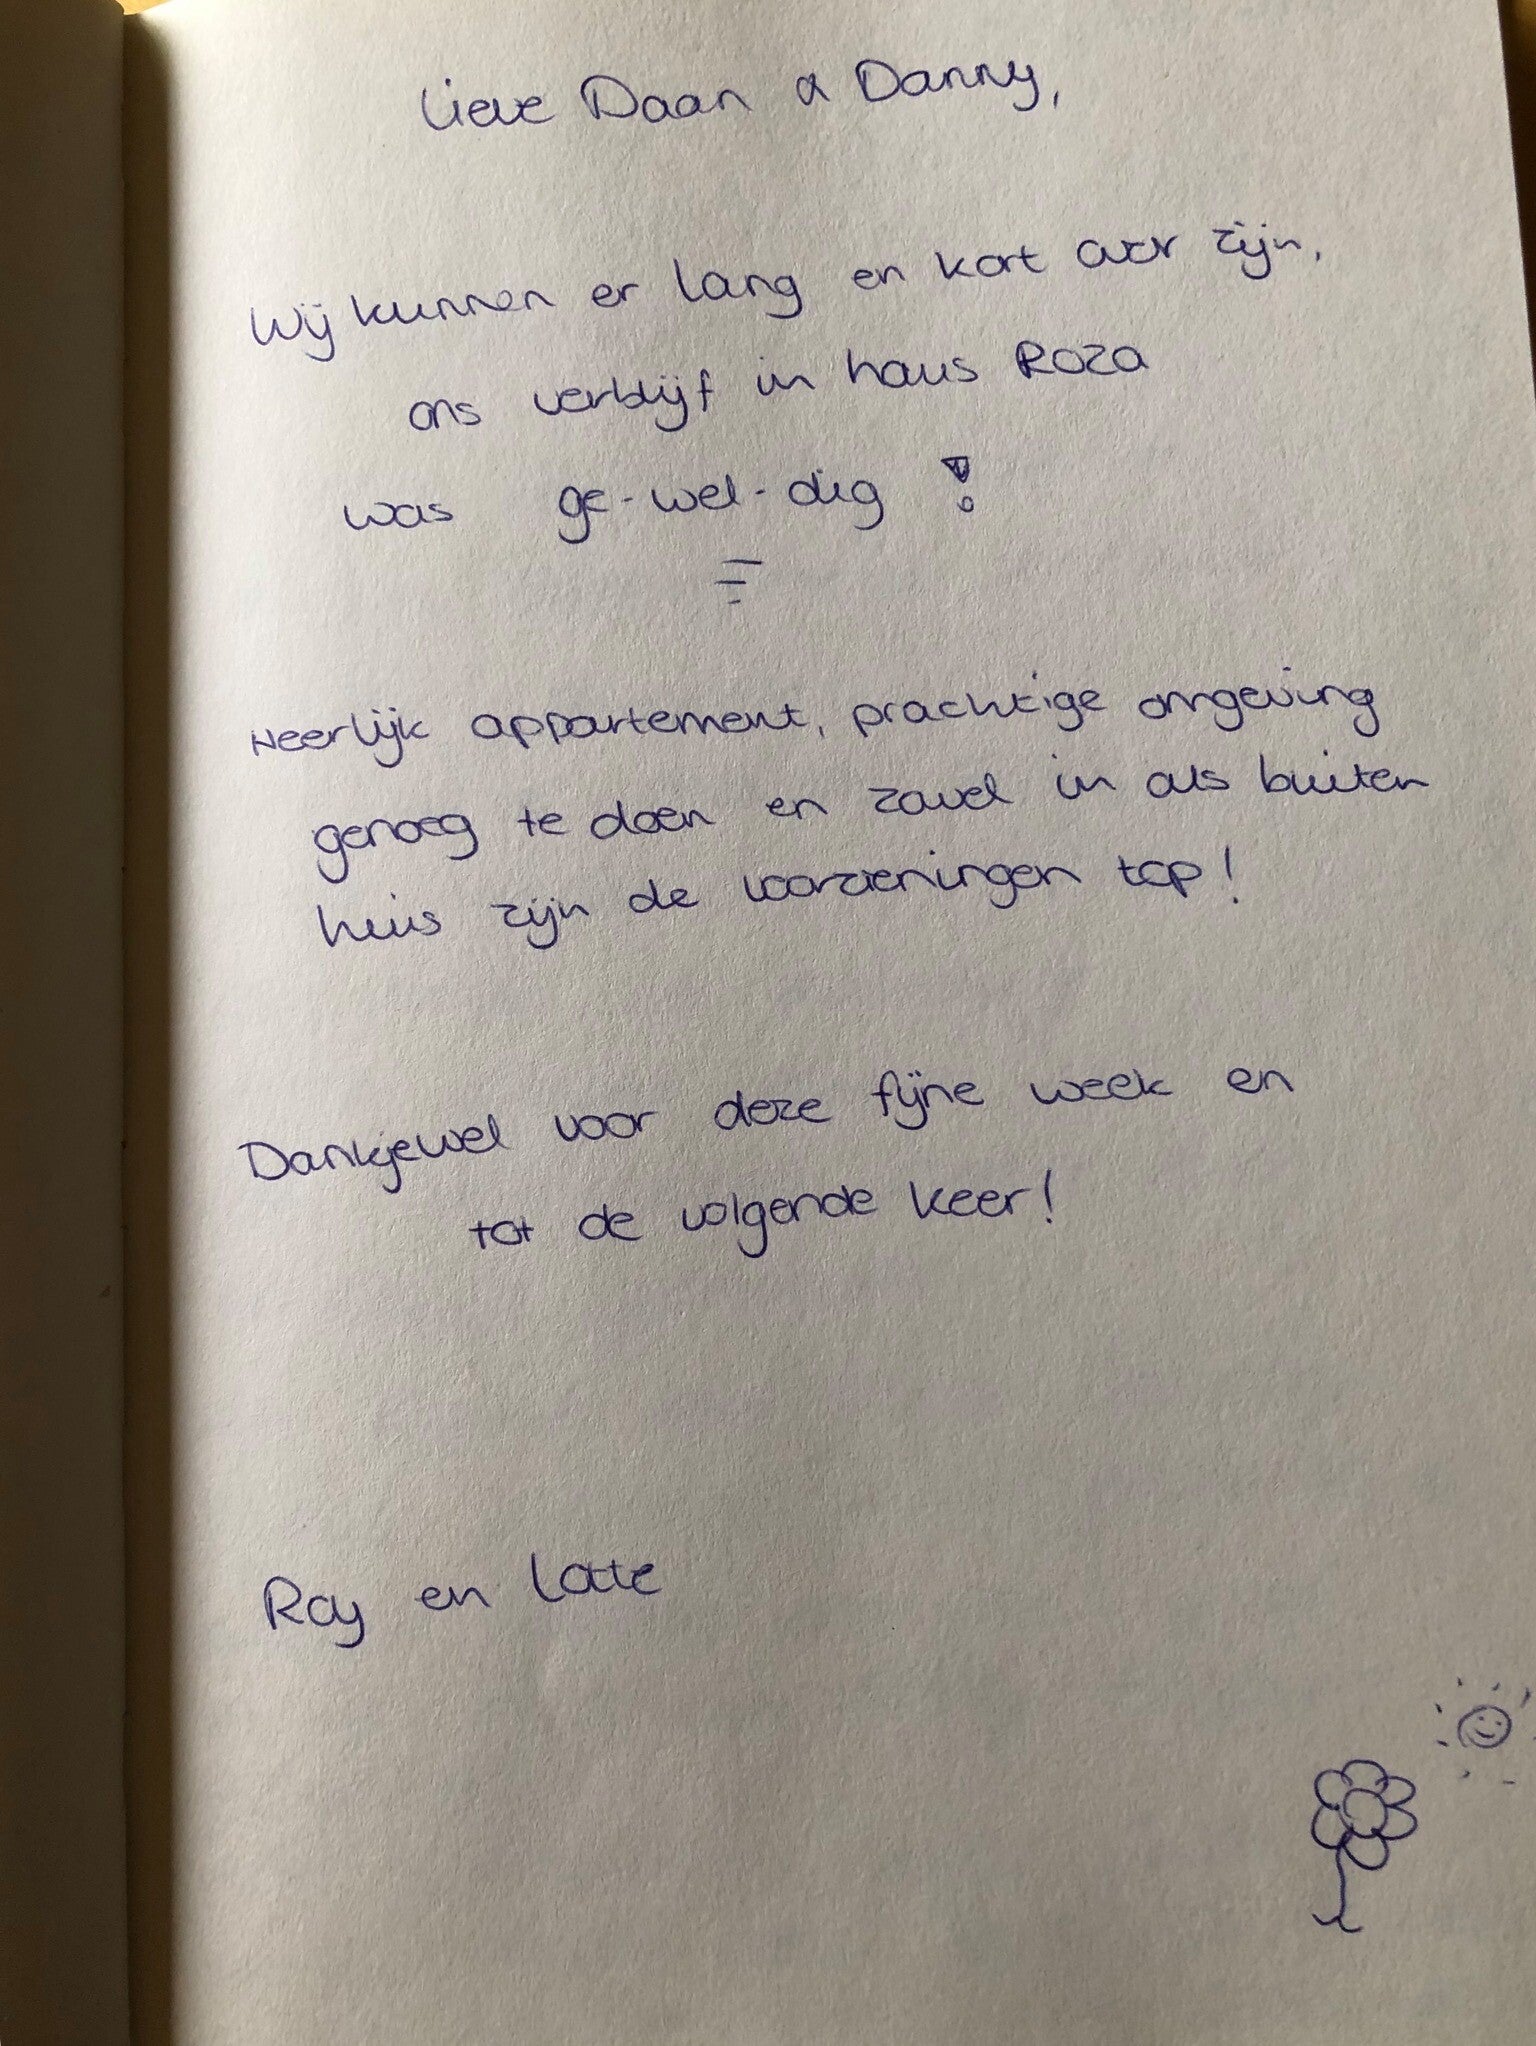 Lieve Daan & Danny,
Wij kunnen er lang en kort over zijn,
ons verblijf in haus Roza
was ge-wel-dig !
Heerlijk appartement, prachtige omgeving
genoeg te doen en zowel in als buiten
huis zijn de voorzieningen top!
Dankjewel voor deze fijne week en
tot de volgende keer!
Roy en Lotte